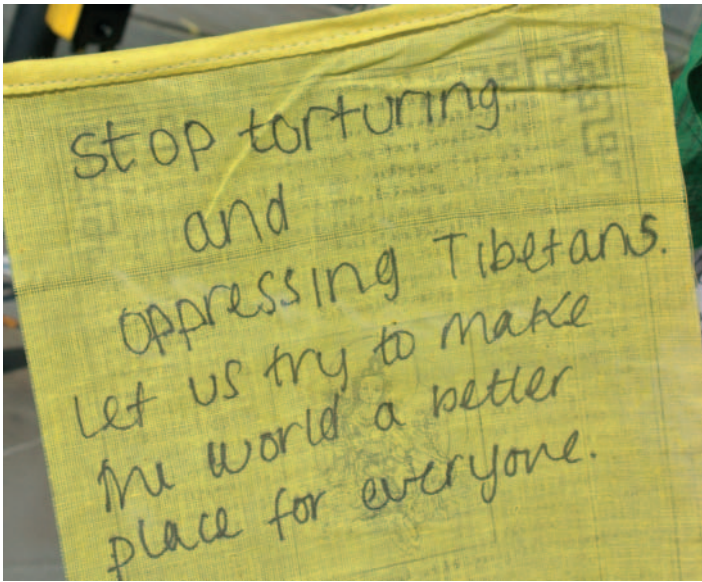 Stop torturing
and
oppressing Tibetans.
Let us try to make
the world a better
place for everyone.